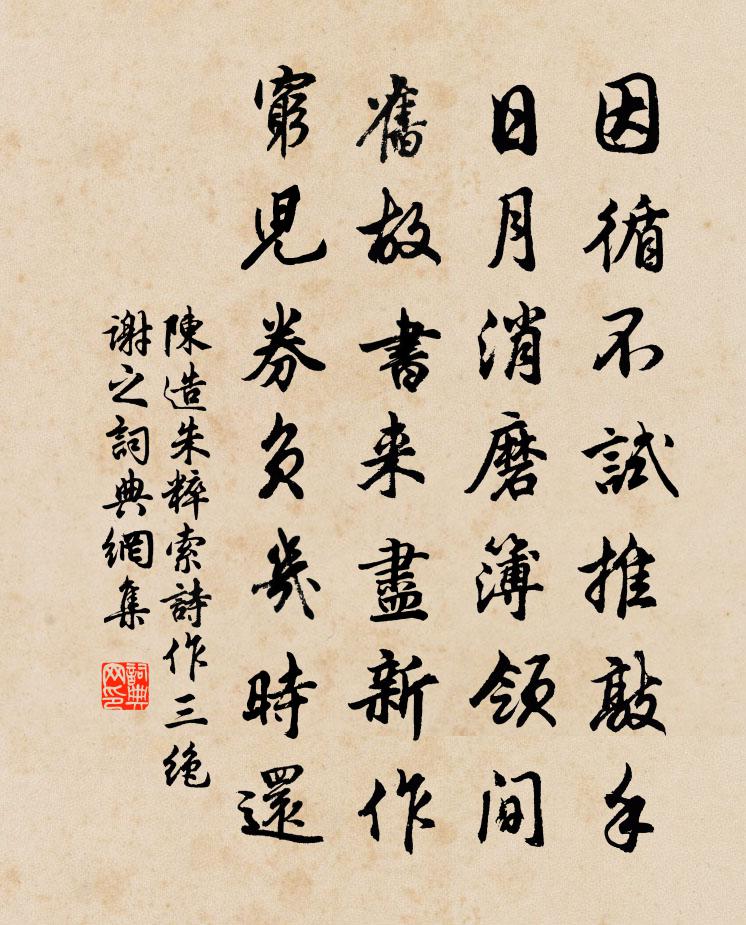 因循不試推敲手
日月消磨簿領間
舊故書来盡新作
窮児券負幾時還
陳造朱粹索詩作三绝
謝之詞典網集
詞典
网印